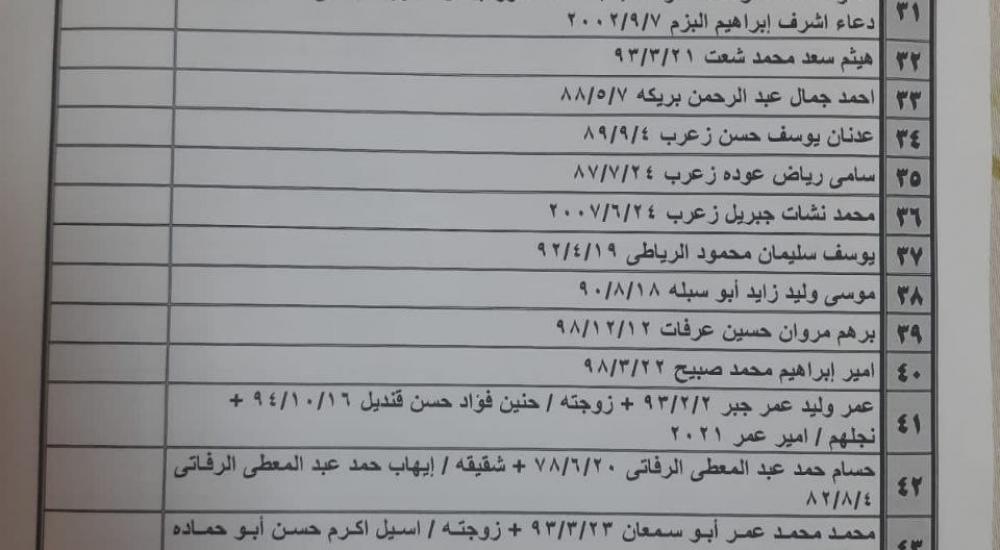 ٣١
دعاء اشرف إبراهيم البزم ٢٠٠٢/٩/٧
٣٢ هيثم سعد محمد شعت ٩٣/٣/٢١
٣٣ احمد جمال عبد الرحمن بريكه ٨٨/٥/٧
٣٤ عدنان يوسف حسن زعرب ٨٩/٩/٤
٣٥ سامى رياض عوده زعرب ٨٧/٧/٢٤
٣٦ محمد نشات جبريل زعرب ٢٠٠٧/٦/٢٤
٣٧ يوسف سليمان محمود الرياطى ٩٢/٤/١٩
٣٨ موسى وليد زايد أبو سبله ٩٠/٨/١٨
٣٩ برهم مروان حسين عرفات ٩٨/١٢/١٢
٤٠ امير إبراهيم محمد صبيح ٩٨/٣/٢٢
٤١ عمر وليد عمر جبر ٩٣/٢/٢ + زوجته / حنين فؤاد حسن قنديل ٩٤/١٠/١٦ +
نجلهم / امير عمر ٢٠٢١
٤٢ حسام حمد عبد المعطى الرفاتى ٧٨/٦/٢٠ + شقيقه / إيهاب حمد عبد المعطى الرفاتى
٨٢/٨/٤
٤٣ محمد محمد عمر أبو سمعان ٩٣/٣/٢٣ + زوجته / اسيل اكرم حسن أبو حماده